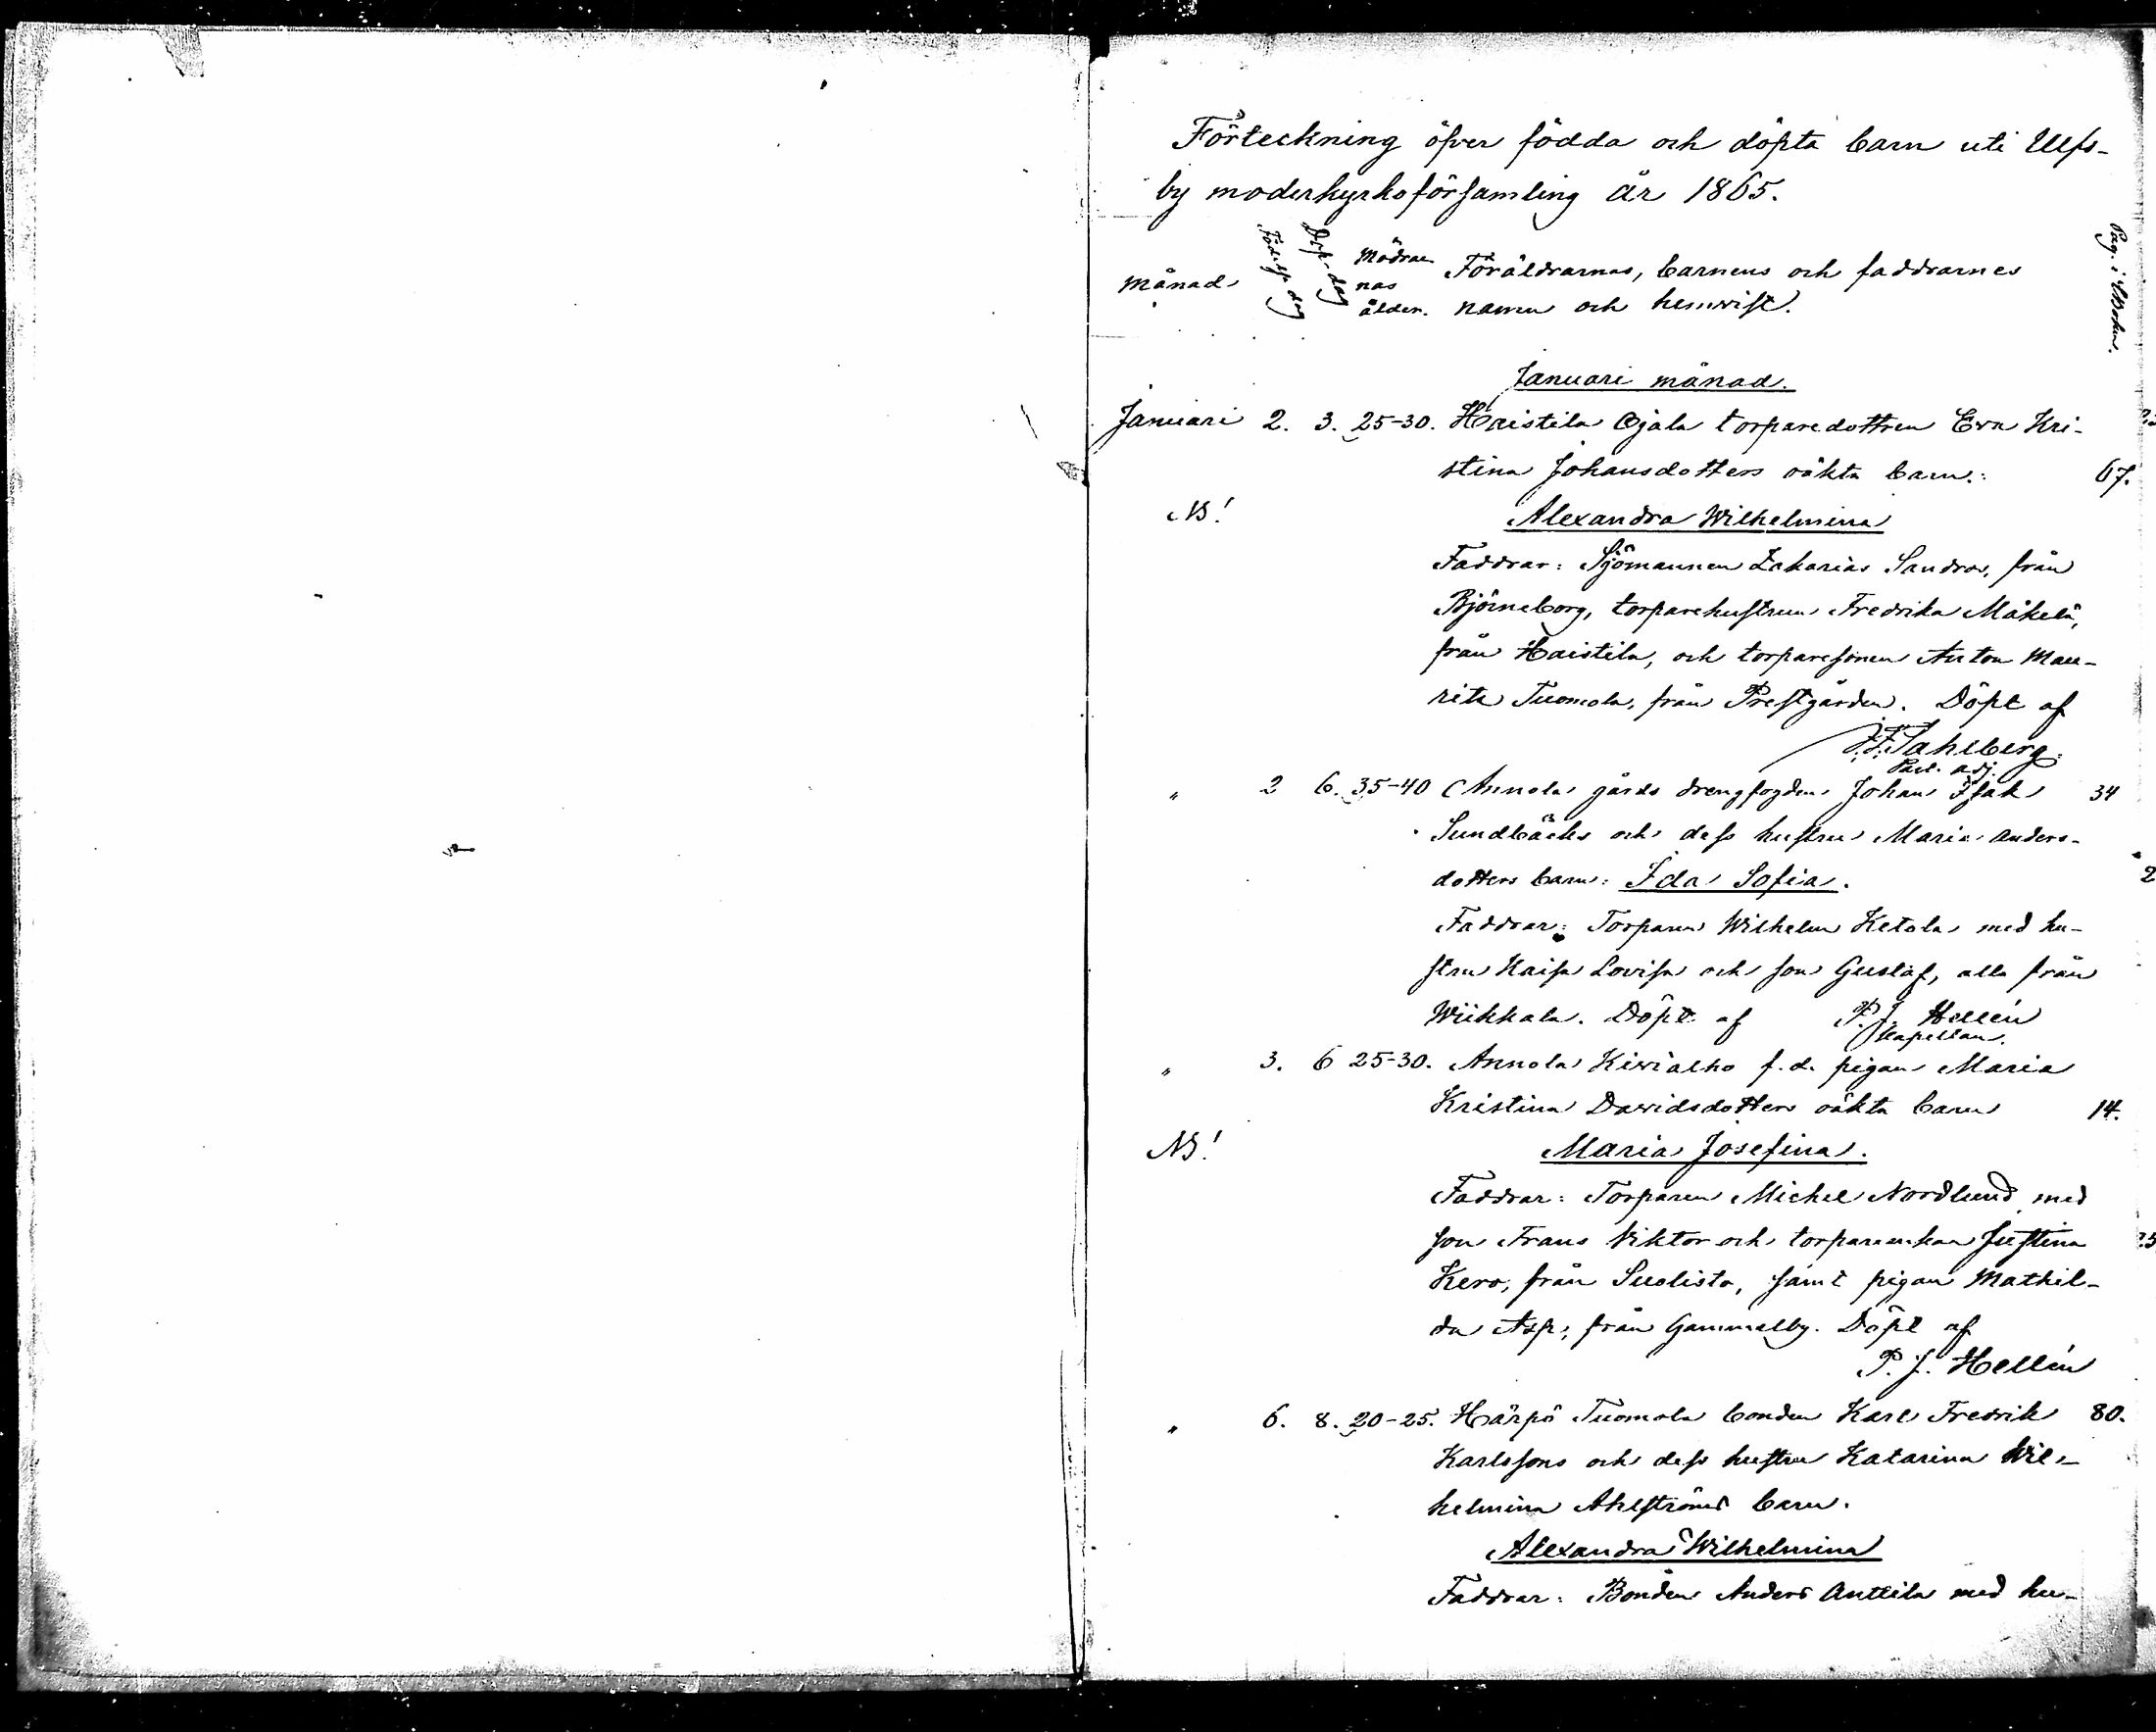 Förteckning öfver födda och döpta barn uti Ulfs-
by moderkyrkoförsamling år 1865.
Månad
Födelse dag
Dop-dag
Mödrar
nas
ålder.
Föräldrarnas, barnens och faddrarnes
namn och hemvist.
Pag. i
Januari månad.
Januari 2. 3. 25-30. Haistila Ojala torparedottren Eva Kri-
stina Johansdotters oäkta barn: 67.
NB! Alexandra Wilhelmina
Faddrar: Sjömannen Zakarias Sandros, från
Björneborg, torparehustrun Fredrika Mäkelä,
från Haistila, och torparesonen Anton Mau-
ritz Tuomola, från Prestgården. Döpt af
F. Sahlberg.
Past. adj.
" 2 6. 35-40 Annola gårds drengfogden Johan Isak 34
Sundbäcks och dess hustru Maria Anders-
dotters barn: Ida Sofia.
Faddrar: Torparen Wilhelm Ketola med hu-
stru Kaisa Lovisa och son Gustaf, alla från
Wiikkala. Döpt af P. J. Hellén
Kapellan.
" 3. 6 25-30. Annola Kivialho f.d. pigan Maria
Kristina Davidsdotters oäkta barn 14.
NB! Maria Josefina.
Faddrar: Torparen Michel Nordlund med
son Frans Viktor och torpareenkan Justina
Kero, från Suolisto, samt pigan Mathil-
da Asp, från Gammelby. Döpt af
P. J. Hellén
" 6. 8. 20-25. Härpö Tuomola bonden Karl Fredrik 80.
Karlssons och dess hustru Katarina Wil-
helmina Ahlströms barn.
Alexandra Wilhelmina
Faddrar: Bonden Anders Anttila med hu-